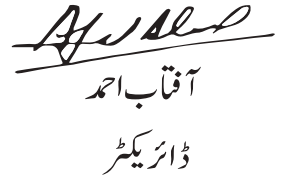 آفتاب احمد
ڈائریکٹر